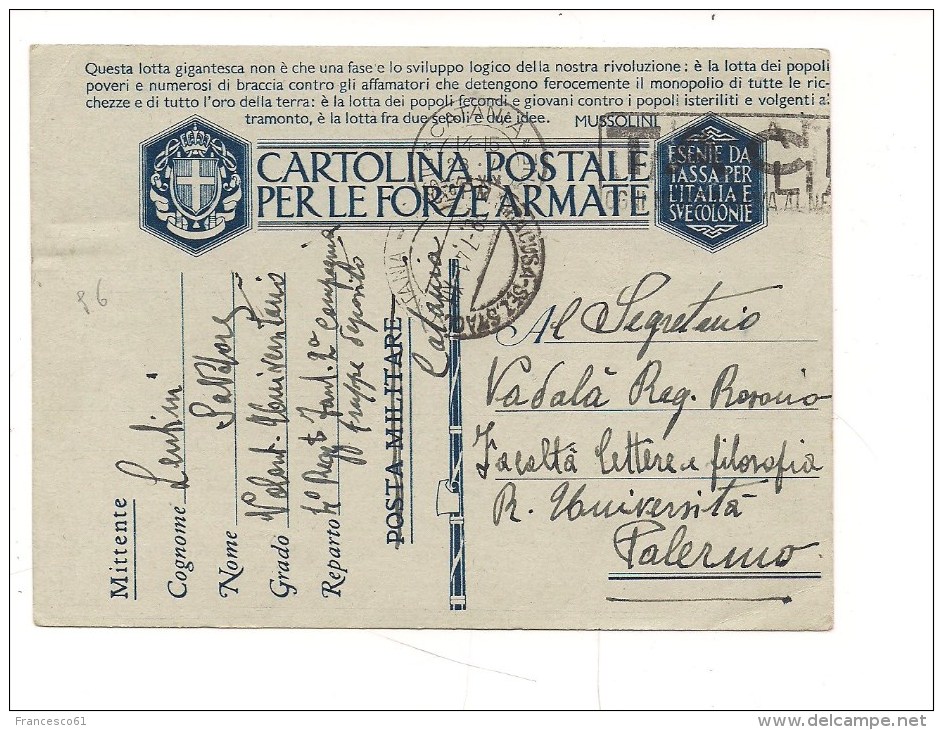 Questa lotta gigantesca non è che una fase e lo sviluppo logico della nostra rivoluzione; è la lotta dei popoli
poveri e numerosi di braccia contro gli affamatori che detengono ferocemente il monopolio di tutte le ric-
chezze e di tutto l'oro della terra: è la lotta dei popoli fecondi e giovani contro i popoli isteriliti e volgenti al
tramonto, è la lotta fra due secoli e due idee. MUSSOLINI
CARTOLINA POSTALE
PER LE FORZE ARMATE
ESENTE DA
TASSA PER
L'ITALIA E
SVE COLONIE
CATANIA
86
Mittente
Cognome Lentini
Nome Salvatore
Grado Volont. Universitario
Reparto 4° Regg. Fant. 2ª Compagnia
Truppe deposito
POSTA MILITARE
Catania
Al Segretario
Vadalà Rag. Rosario
Facoltà lettere e filosofia
R. Università
Palermo
Francesco61
delcampe.net